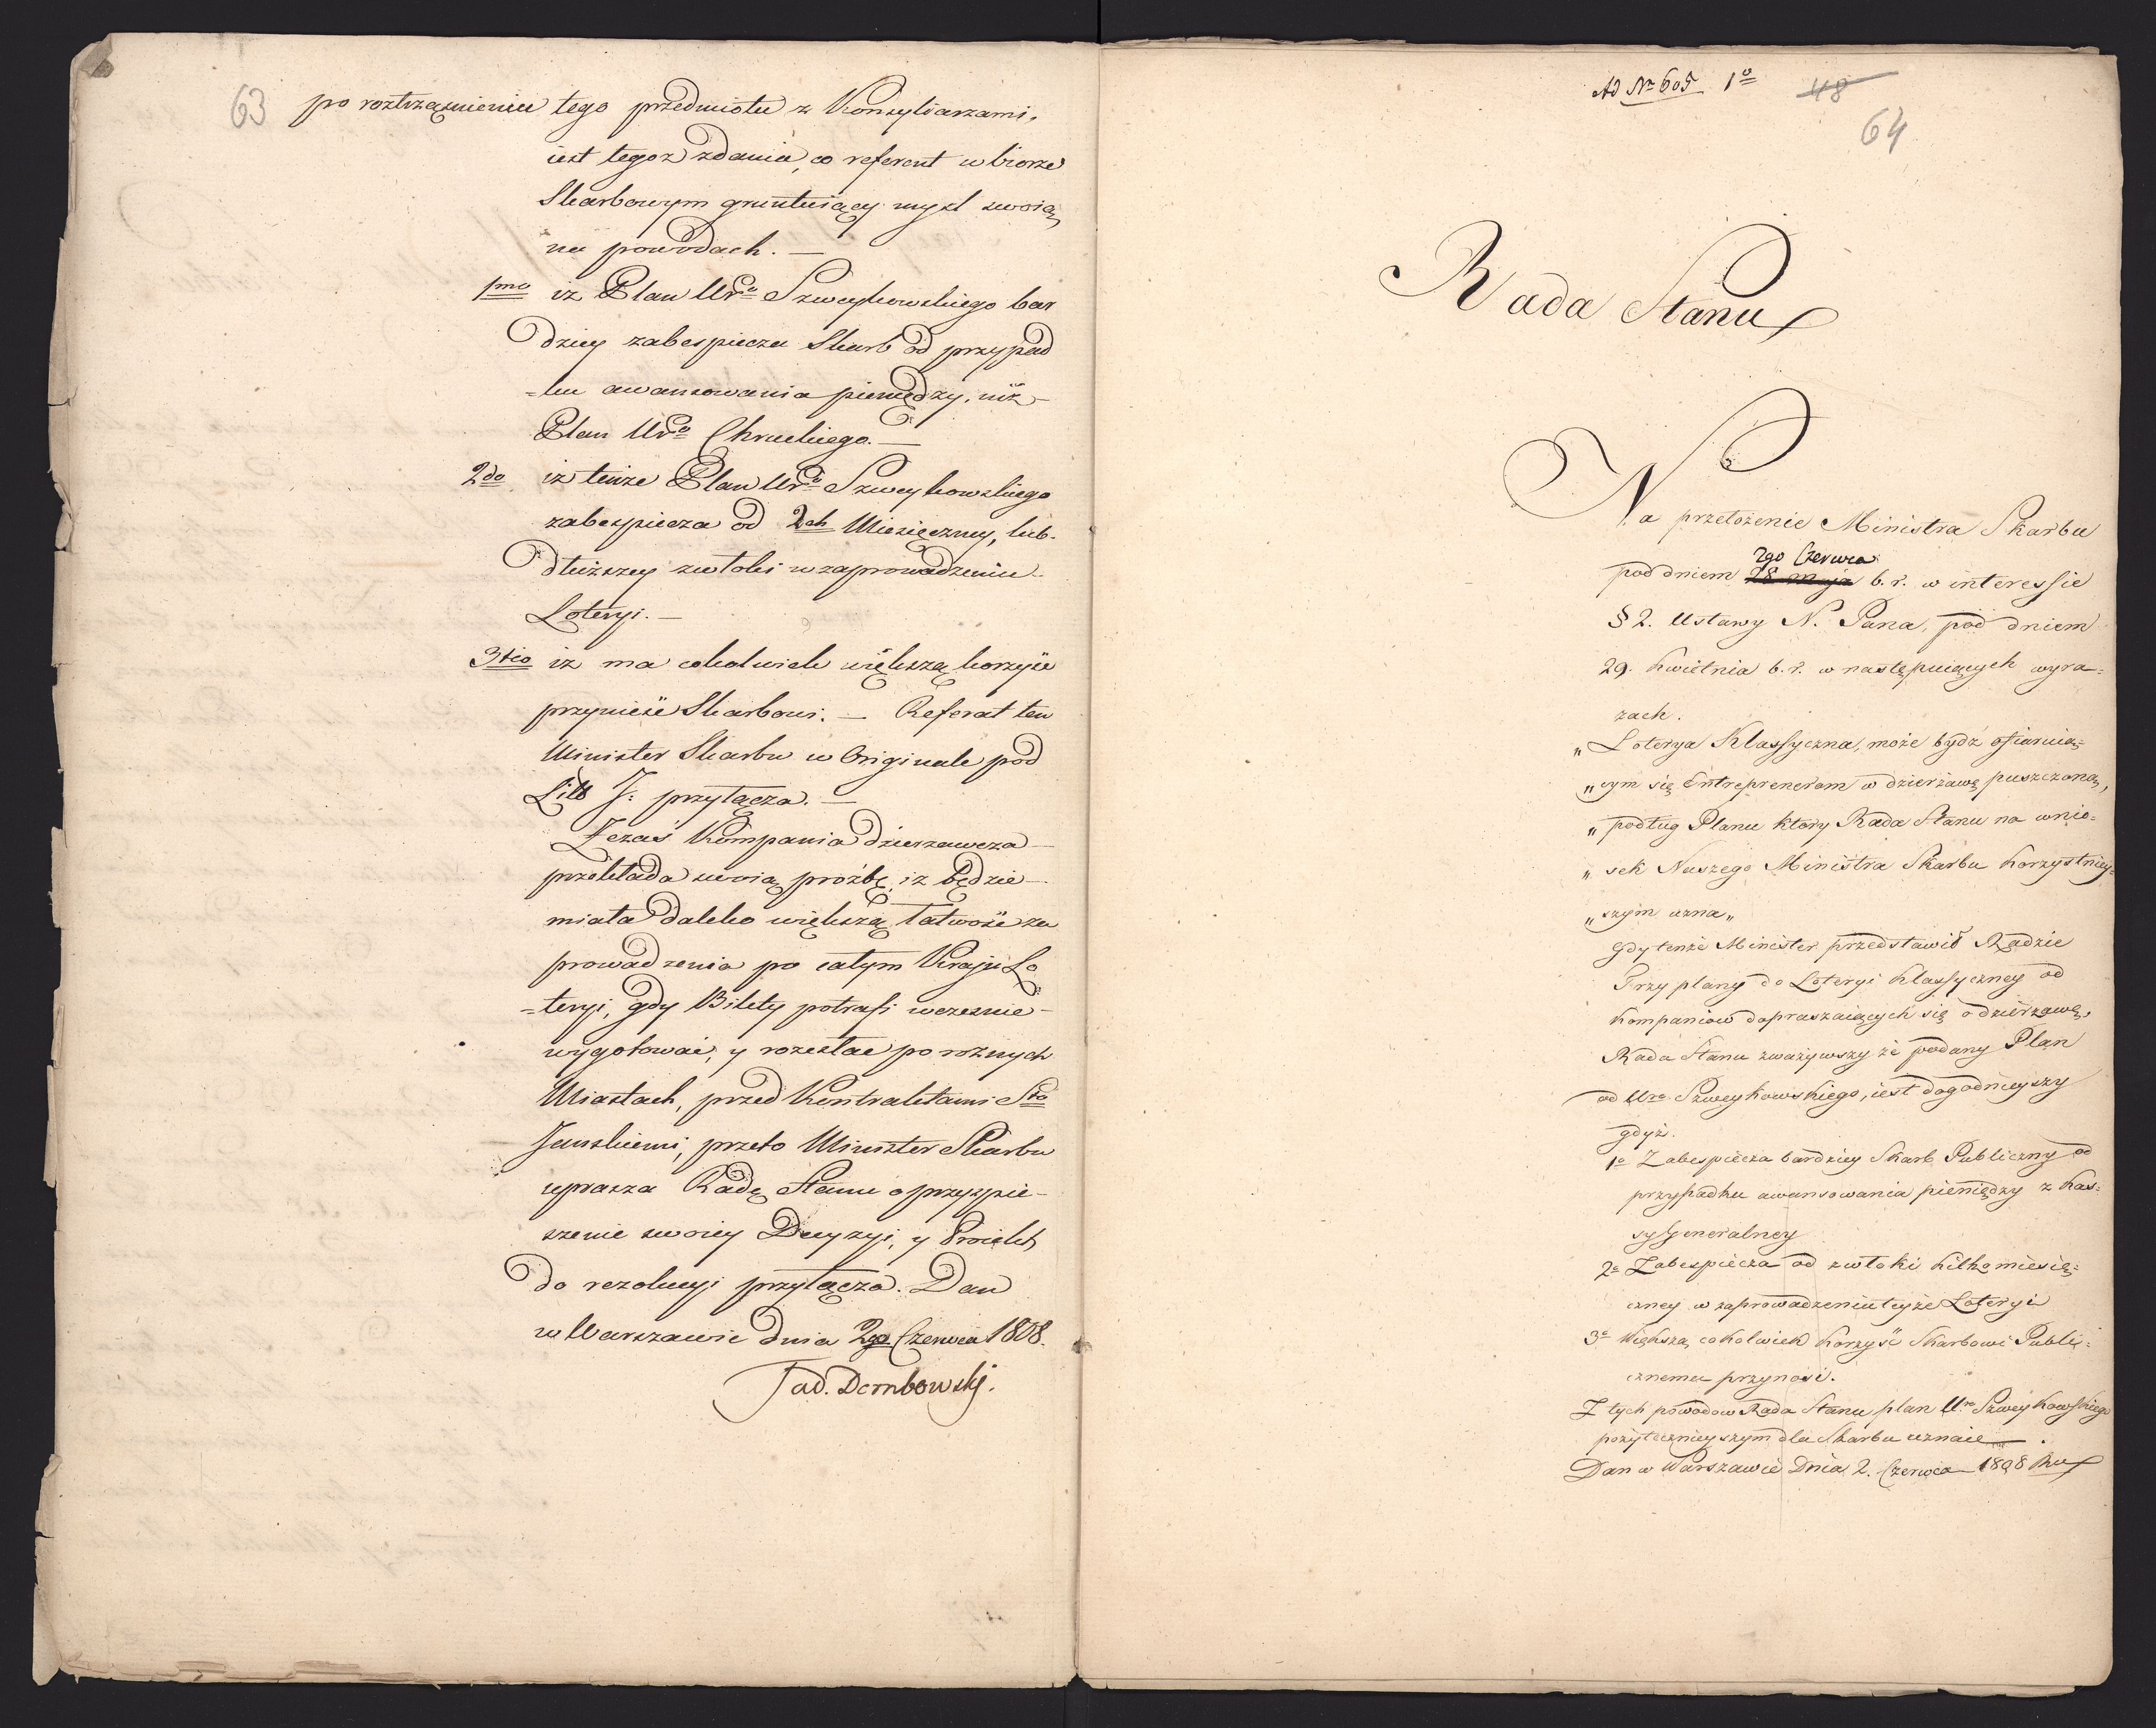 63
po roztrząśnieniu tego przedmiotu z Konsyliarzami,
iest tegoz zdania, co referent w biorze
Skarbowym gruntuiący mysl swoią
na powodach. —
1mo iz Plan Uro Szweykowskiego bar
dziey zabespiecza Skarb od przypad
=ku awansowania pieniędzy, niż
Plan Uro Chruckiego. —
2do iz tenze Plan Uro Szweykowskiego
zabespiecza od 2ch Miesięczney, lub
dłuższey zwłoki w zaprowadzeniu
Loteryi. —
3tio iz ma cokolwiek większą korzyść
przynieść Skarbowi. — Referat ten
Minister Skarbu w Originale pod
Litt J: przyłącza. —
Zezaś Kompania dzierzawcza
przekłada swoią prożbę, iz będzie
miała daleko większą łatwość za
prowadzenia po całym Kraju Lo
=teryi, gdy Bilety potrafi wcześnie
wygotować, y rozesłać po roznych
Miastach, przed Kontraktami Sto
Janskiemi, przeto Minister Skarbu
uprasza Radę Stanu o przyspie-
szenie swoiey Decyzyi, y Proiekt
do rezolucyi przyłącza. Dan
w Warszawie dnia 2go Czerwca 1808.
Tad. Dembowski.
Ad Nr 605 1o
48
64
Rada Stanu
Na przełożenie Ministra Skarbu
2go Czerwca
pod dniem 28 maja b. r. w interessie
§ 2. Ustawy N. Pana, pod dniem
29. Kwietnia b. r. w następuiących wyra=
zach.
„ Loterya Klassyczna, może bydź ofiaruią=
„ cym się Entreprenerom w dzierżawę puszczona,
„ podług Planu który Rada Stanu na wnio=
„ sek Naszego Ministra Skarbu korzystniey=
„ szym uzna„
gdy tenże Minister przedstawił Radzie
Trzy plany do Loteryi Klassyczney od
Kompaniow dopraszaiących się o dzierżawę,
Rada Stanu zważywszy że podany Plan
od Uro Szweykowskiego, iest dogodnieyszy
gdyż.
1o Zabespiecza bardziey Skarb Publiczny od
przypadku awansowania pieniędzy z Kas=
sy Generalney
2o Zabespiecza od zwłoki kilkomiesię=
czney w zaprowadzeniu teyże Loteryi
3o Większą cokolwiek korzyść Skarbowi Publi=
cznemu przynosi.
Z tych powodow Rada Stanu plan Uro Szweykowskiego
pożytecznieyszym dla Skarbu uznaie.
Dan w Warszawie Dnia 2. Czerwca 1808 Ru